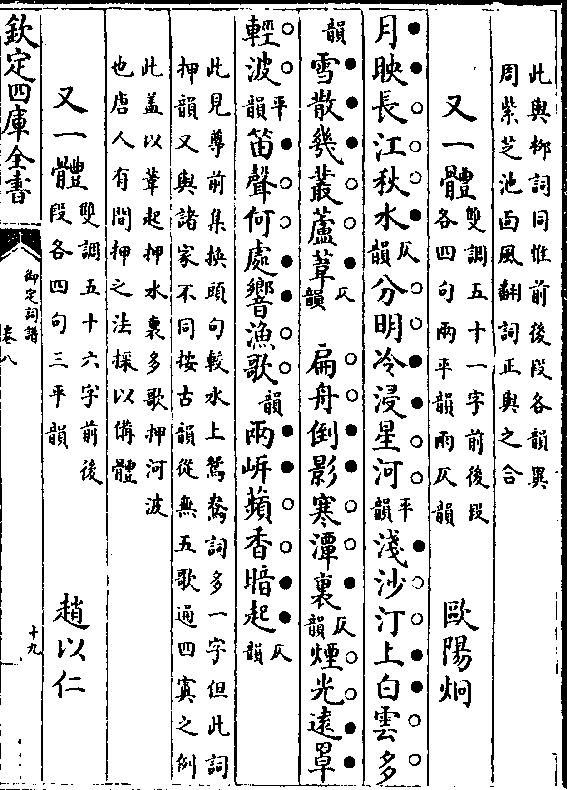 此與柳詞同惟前後段各韻異
周紫芝池面風翻詞正與之合
又一體 雙調五十一字前後段
各四句兩平韻兩仄韻 歐陽炯
月映長江秋水仄韻分明冷浸星河平韻淺沙汀上白雲多
韻雪散幾叢蘆葦仄韻 扁舟倒影寒潭裏仄韻煙光遠罩
輕波平韻笛聲何處響漁歌韻兩岍蘋香暗起仄韻
此見尊前集換頭句較水上鴛鴦詞多一字但此詞
押韻又與諸家不同按古韻從無五歌通四寘之例
此蓋以葦起押水裏多歌押河波
也唐人有間押之法採以備體
又一體 雙調五十六字前後
段各四句三平韻 趙以仁
欽定四庫全書
御定詞譜
卷八
十九